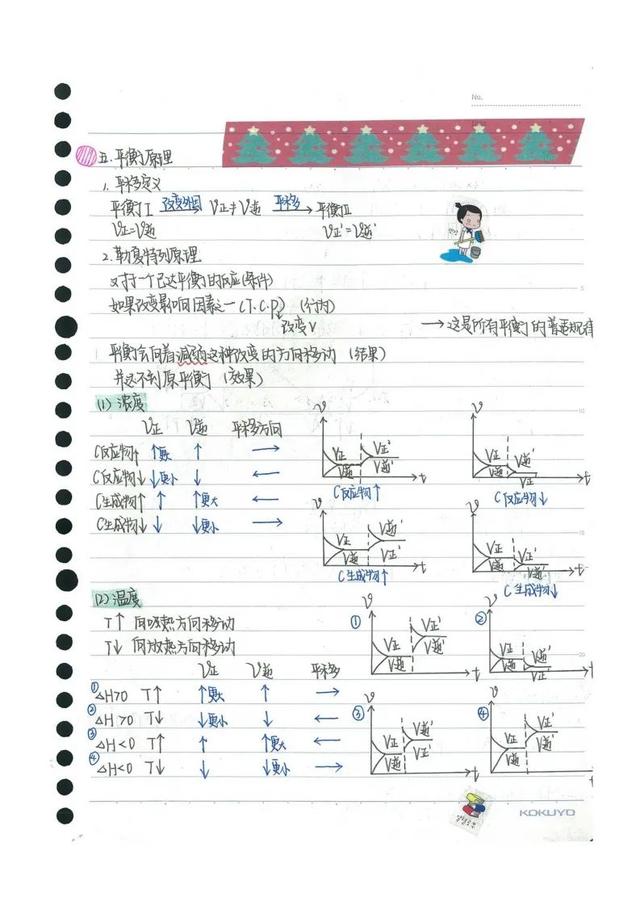 No.
五.平衡原理
1. 平移定义
平衡Ⅰ 改变外因 V正≠V逆 平移 → 平衡Ⅱ
V正=V逆 V正'=V逆'
2.勒夏特列原理
对于一个已达平衡的反应(条件)
如果改变影响因素之一(T.C.P) (行为)
改变V → 这是所有平衡的普适规律
平衡会向着减弱这种改变的方向移动 (结果)
并达不到原平衡 (效果)
(1) 浓度
V正 V逆 平移方向
C反应物↑ ↑更大 ↑ →
C反应物↓ ↓更小 ↓ ←
C生成物↑ ↑ ↑更大 ←
C生成物↓ ↓ ↓更小 →
V V正 V逆 V正' V逆' t
C反应物↑
V V正 V逆 V逆' V正' t
C反应物↓
V正 V逆 V逆' V正' t
C生成物↑
V正 V逆 V正' V逆' t
C生成物↓
(2) 温度
T↑ 向吸热方向移动
T↓ 向放热方向移动
V正 V逆 平移
① △H>0 T↑ ↑更大 ↑ →
② △H>0 T↓ ↓更小 ↓ ←
③ △H<0 T↑ ↑ ↑更大 ←
④ △H<0 T↓ ↓ ↓更小 →
① V V正 V逆 V正' V逆' t
② V V正 V逆 V逆' V正' t
③ V V正 V逆 V逆' V正'
④ V正 V逆 V正' V逆'
KOKUYO